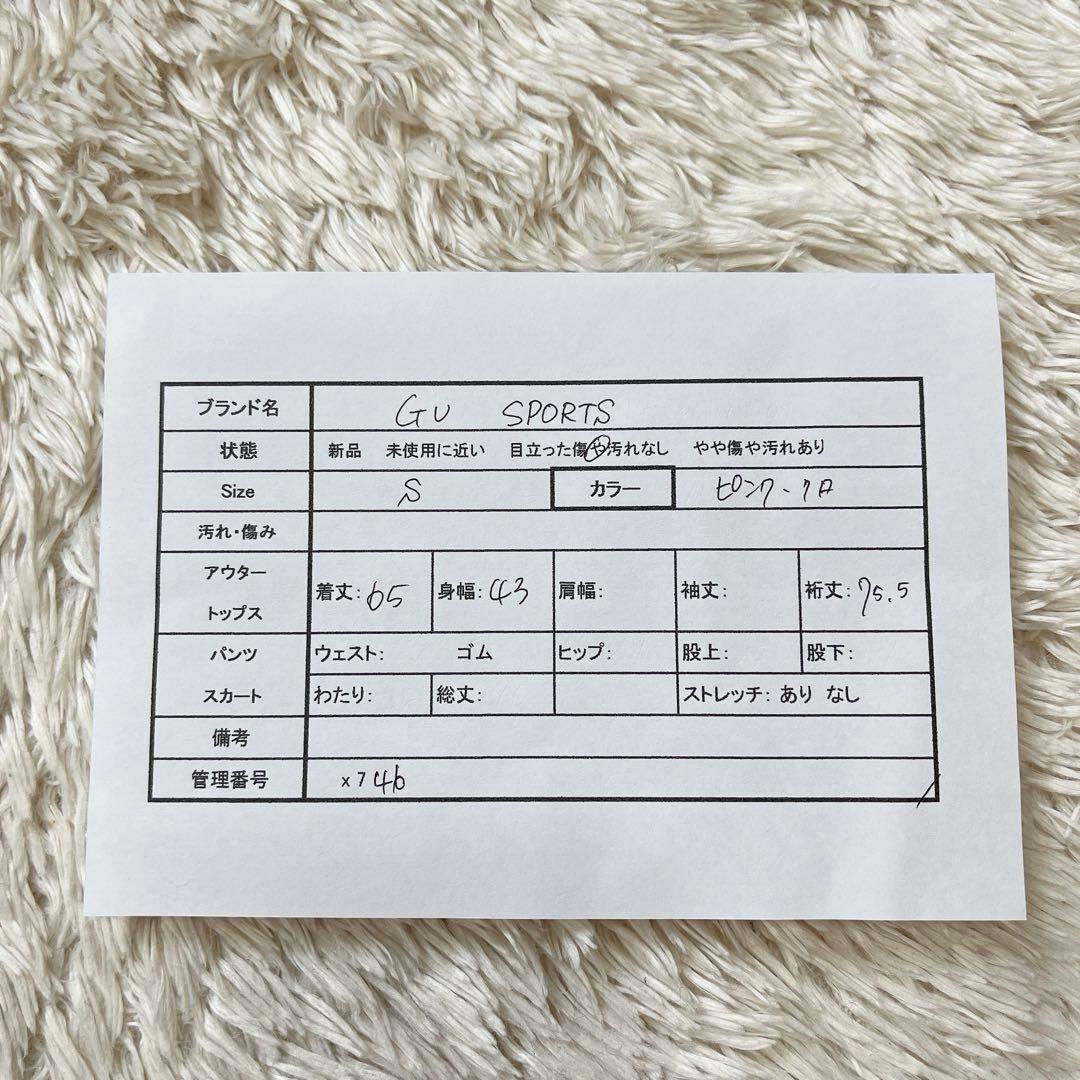 ブランド名 GU SPORTS
状態 新品 未使用に近い 目立った傷や汚れなし やや傷や汚れあり
Size S カラー ピンク-クロ
汚れ・傷み
アウター
トップス
着丈:65 身幅:43 肩幅: 袖丈: 裄丈:75.5
パンツ ウェスト: ゴム ヒップ: 股上: 股下:
スカート わたり: 総丈: ストレッチ: あり なし
備考
管理番号 x746